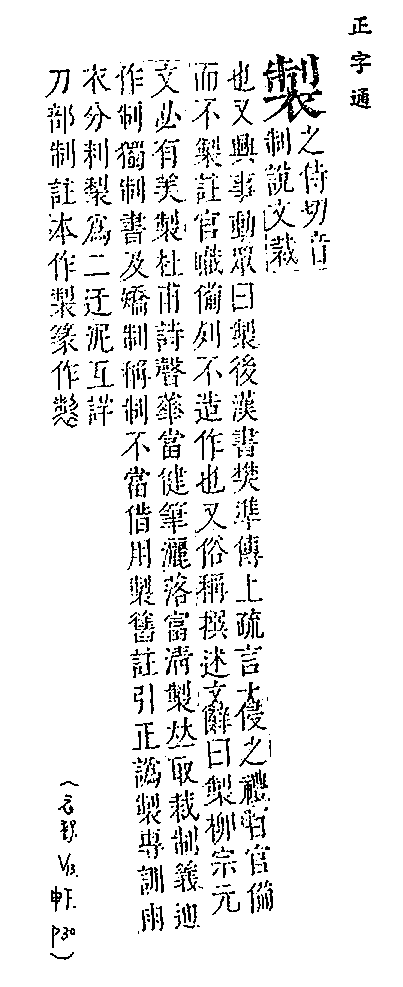 正字通
製 之侍切音
制說文裁
也又興事動眾曰製後漢書樊準傳上疏言大侵之禮百官備
而不製註官職備列不造作也又俗稱撰述文辭曰製柳宗元
文必有美製杜甫詩聲華當健筆灑落富清製𠀤取裁制義通
作制獨制書及矯制稱制不當借用製舊註引正譌製專訓雨
衣分制製為二迂泥互詳
刀部制註本作製篆作
(衣部. V13. 申下. P30)